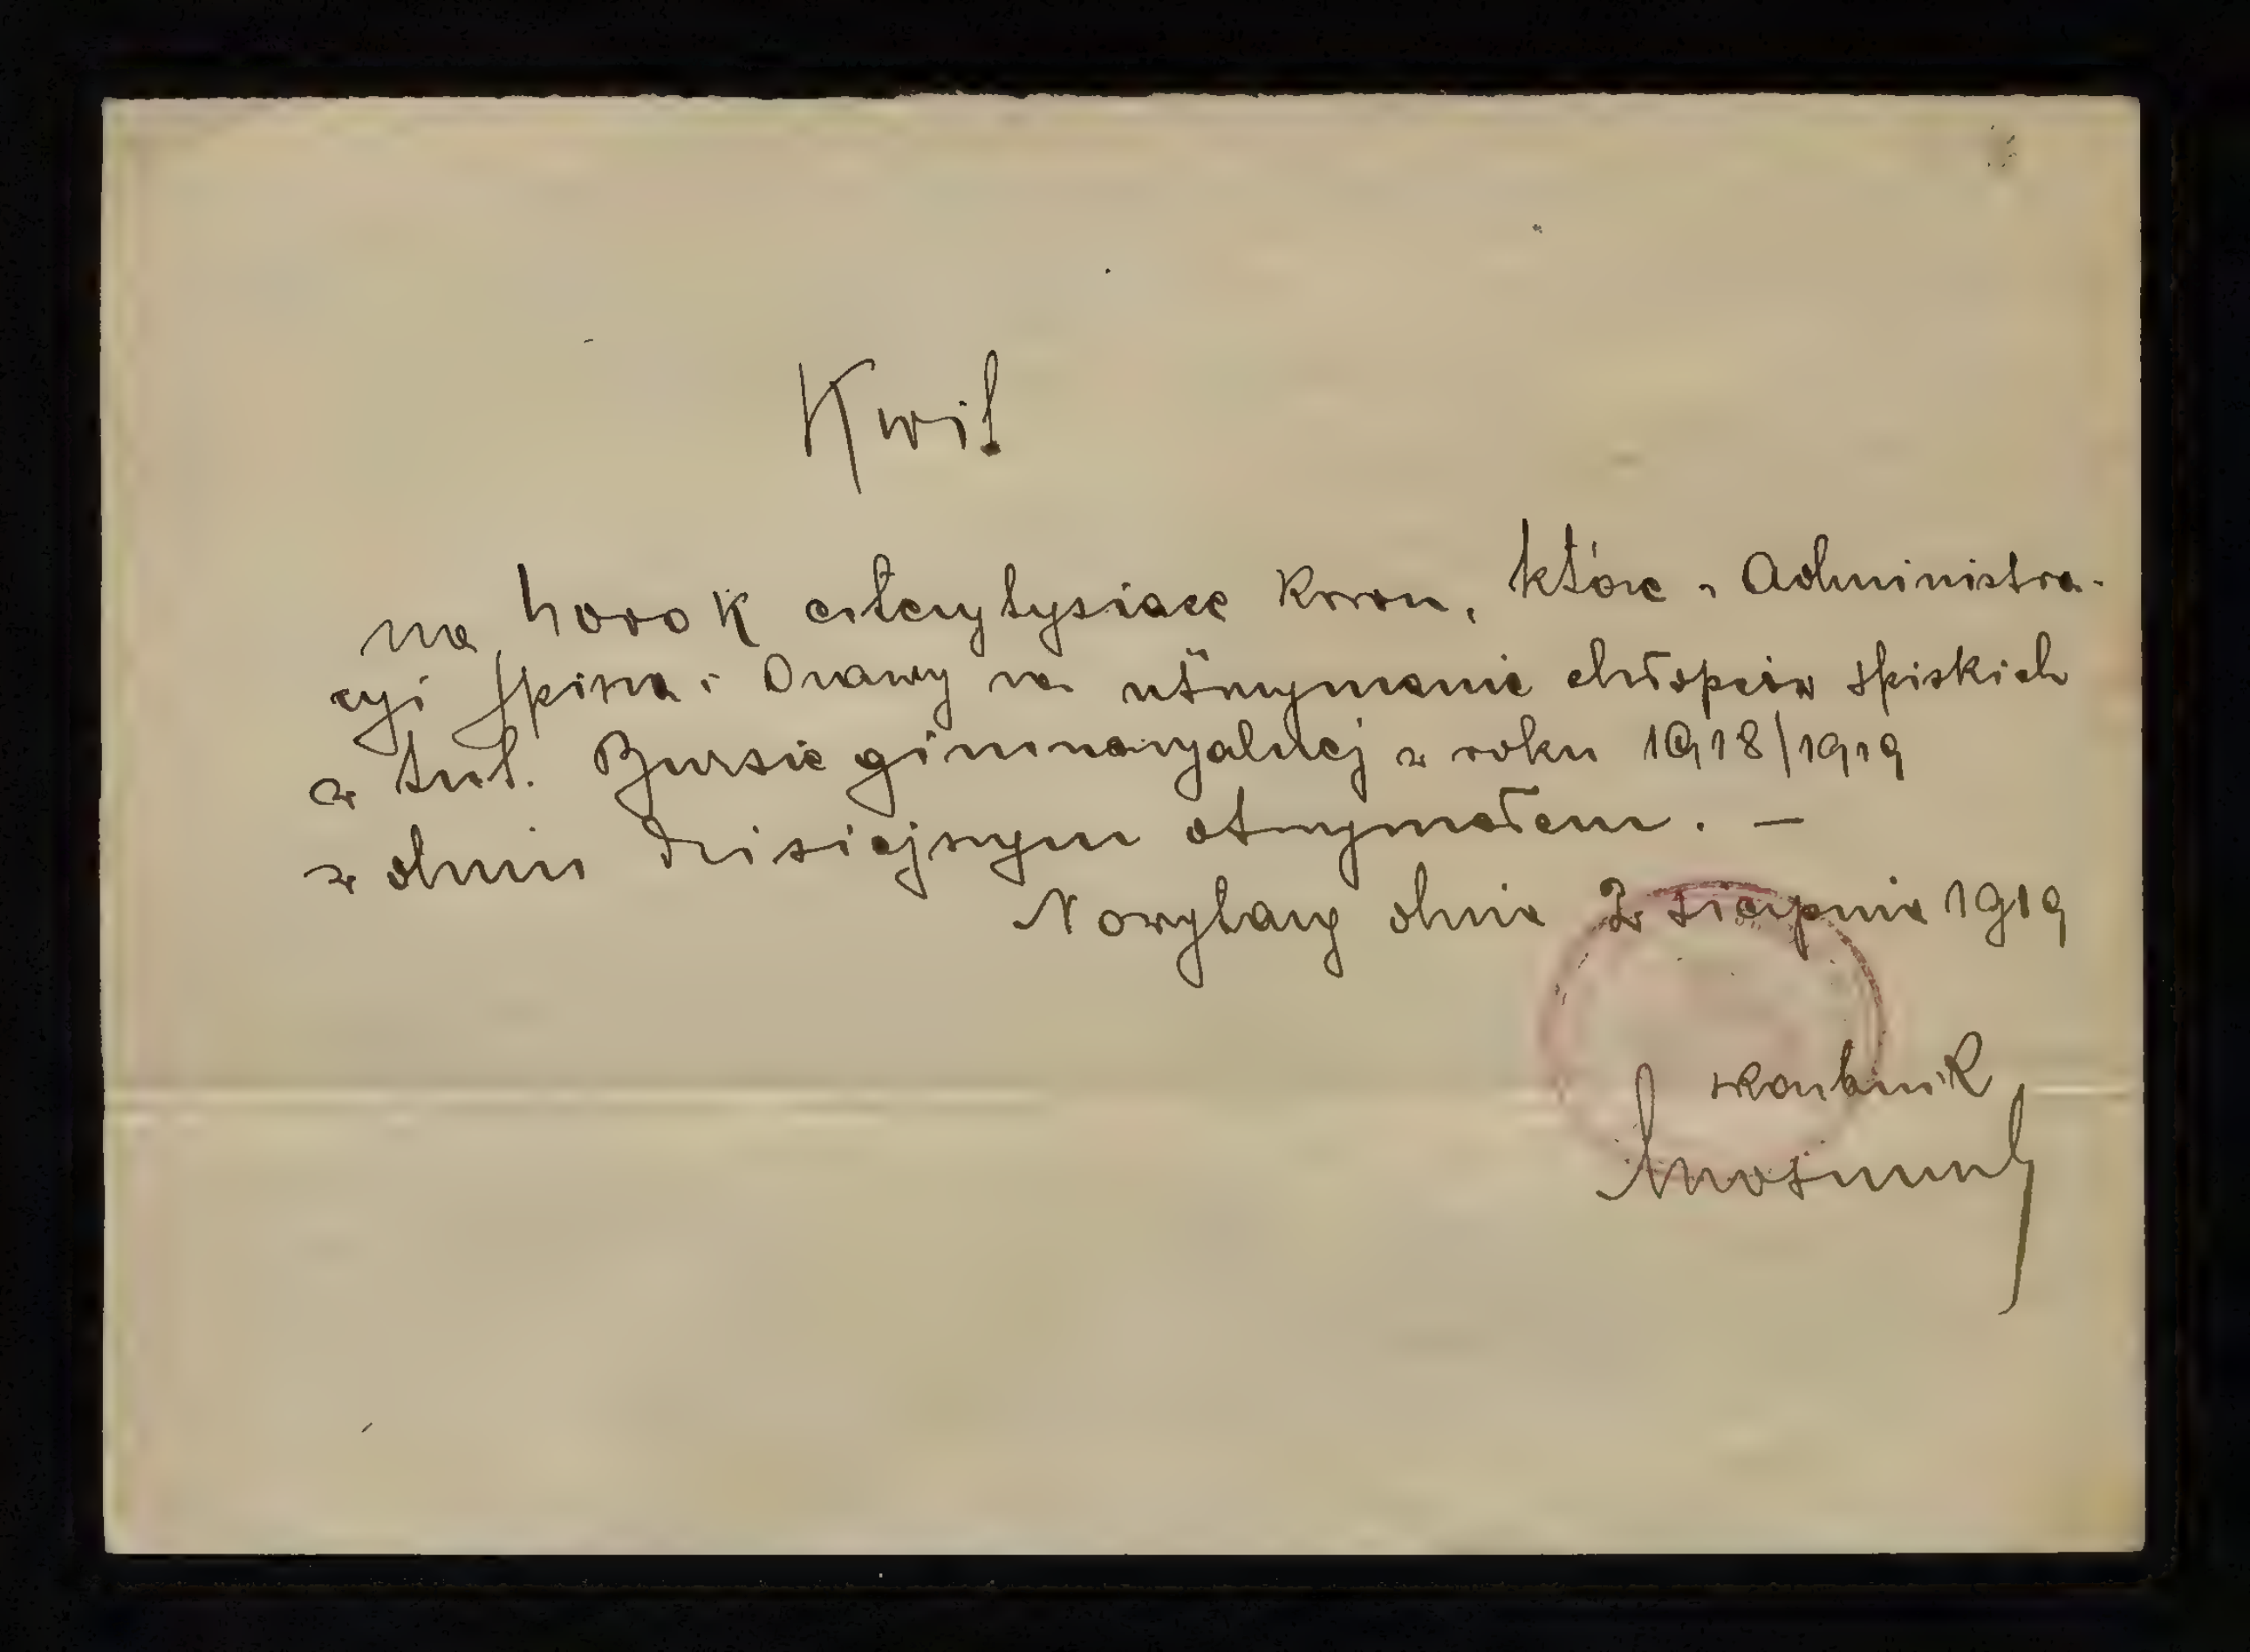 Kwit
na 4000 K czterytysiące Koron, które z Administra-
cyi Spisza i Orawy na utrzymanie chłopców spiskich
w tut. Bursie gimnazyalnej w roku 1918/1919
w dniu dzisiejszym otrzymałem. —
Nowytarg dnia 2 sierpnia 1919
skarbnik